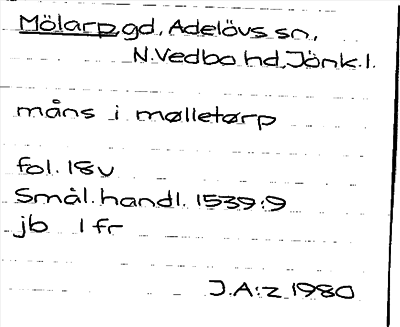 Mölarp, gd, Adelövs sn,
N.Vedbo hd, Jönk.l.
måns i mølletørp
fol. 18v
Smål. handl. 1539:9
jb 1 fr
J.A:z 1980